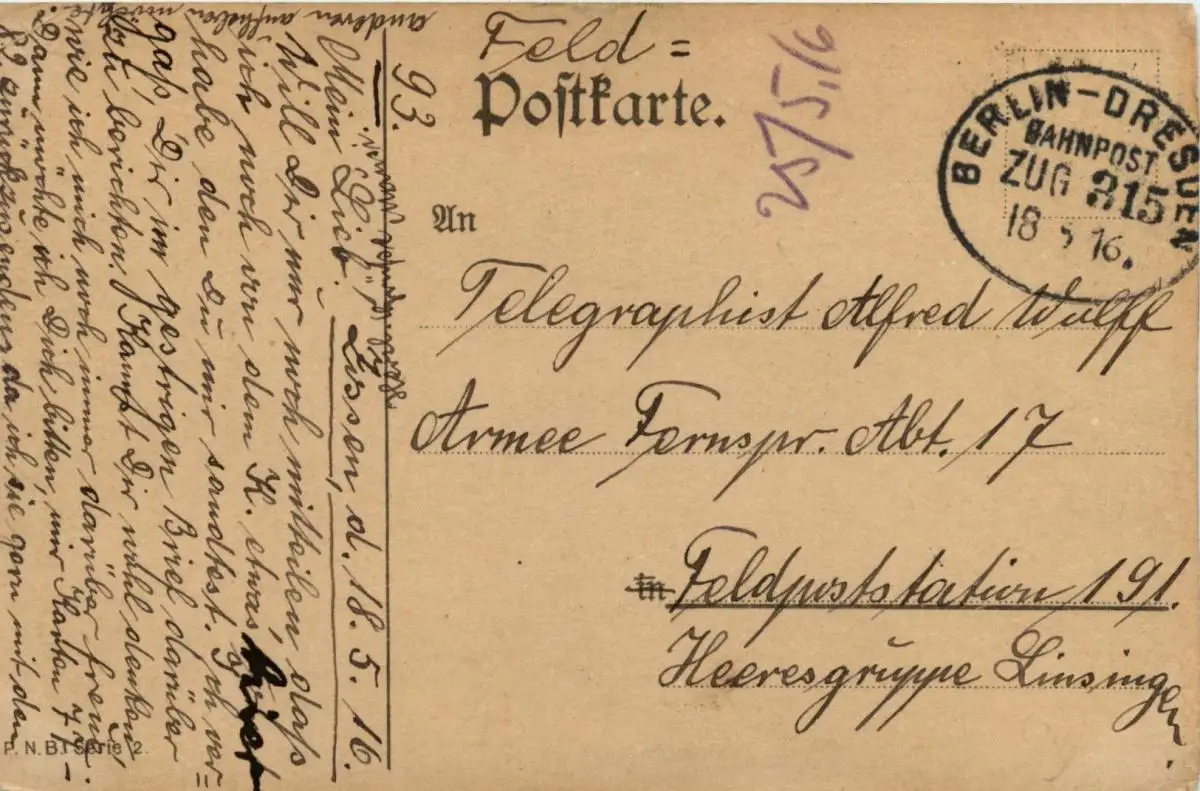 Feld =
Postkarte.
25/5.16
BERLIN-DRESDEN
BAHNPOST
ZUG 315
18 5 16.
An
Telegraphist Alfred Wulff
Armee Fernspr. Abt. 17
in Feldpoststation 191.
Heeresgruppe Linsingen.
93.
Zossen, d. 18.5.16.
Mein Lieb!
Will Dir nur noch mitteilen, daß
ich noch von dem K. etwas
habe den Du mir sandtest. Ich ver=
gaß, Dir im gestrigen Brief darüber
zu berichten. Kannst Dir wohl denken,
wie ich mich noch immer darüber freue.
Dann möchte ich Dich bitten, mir Karten 77-
82 zurückzusenden, da ich sie gern mit den
anderen aufheben möchte.
P. N. B. Serie 2.